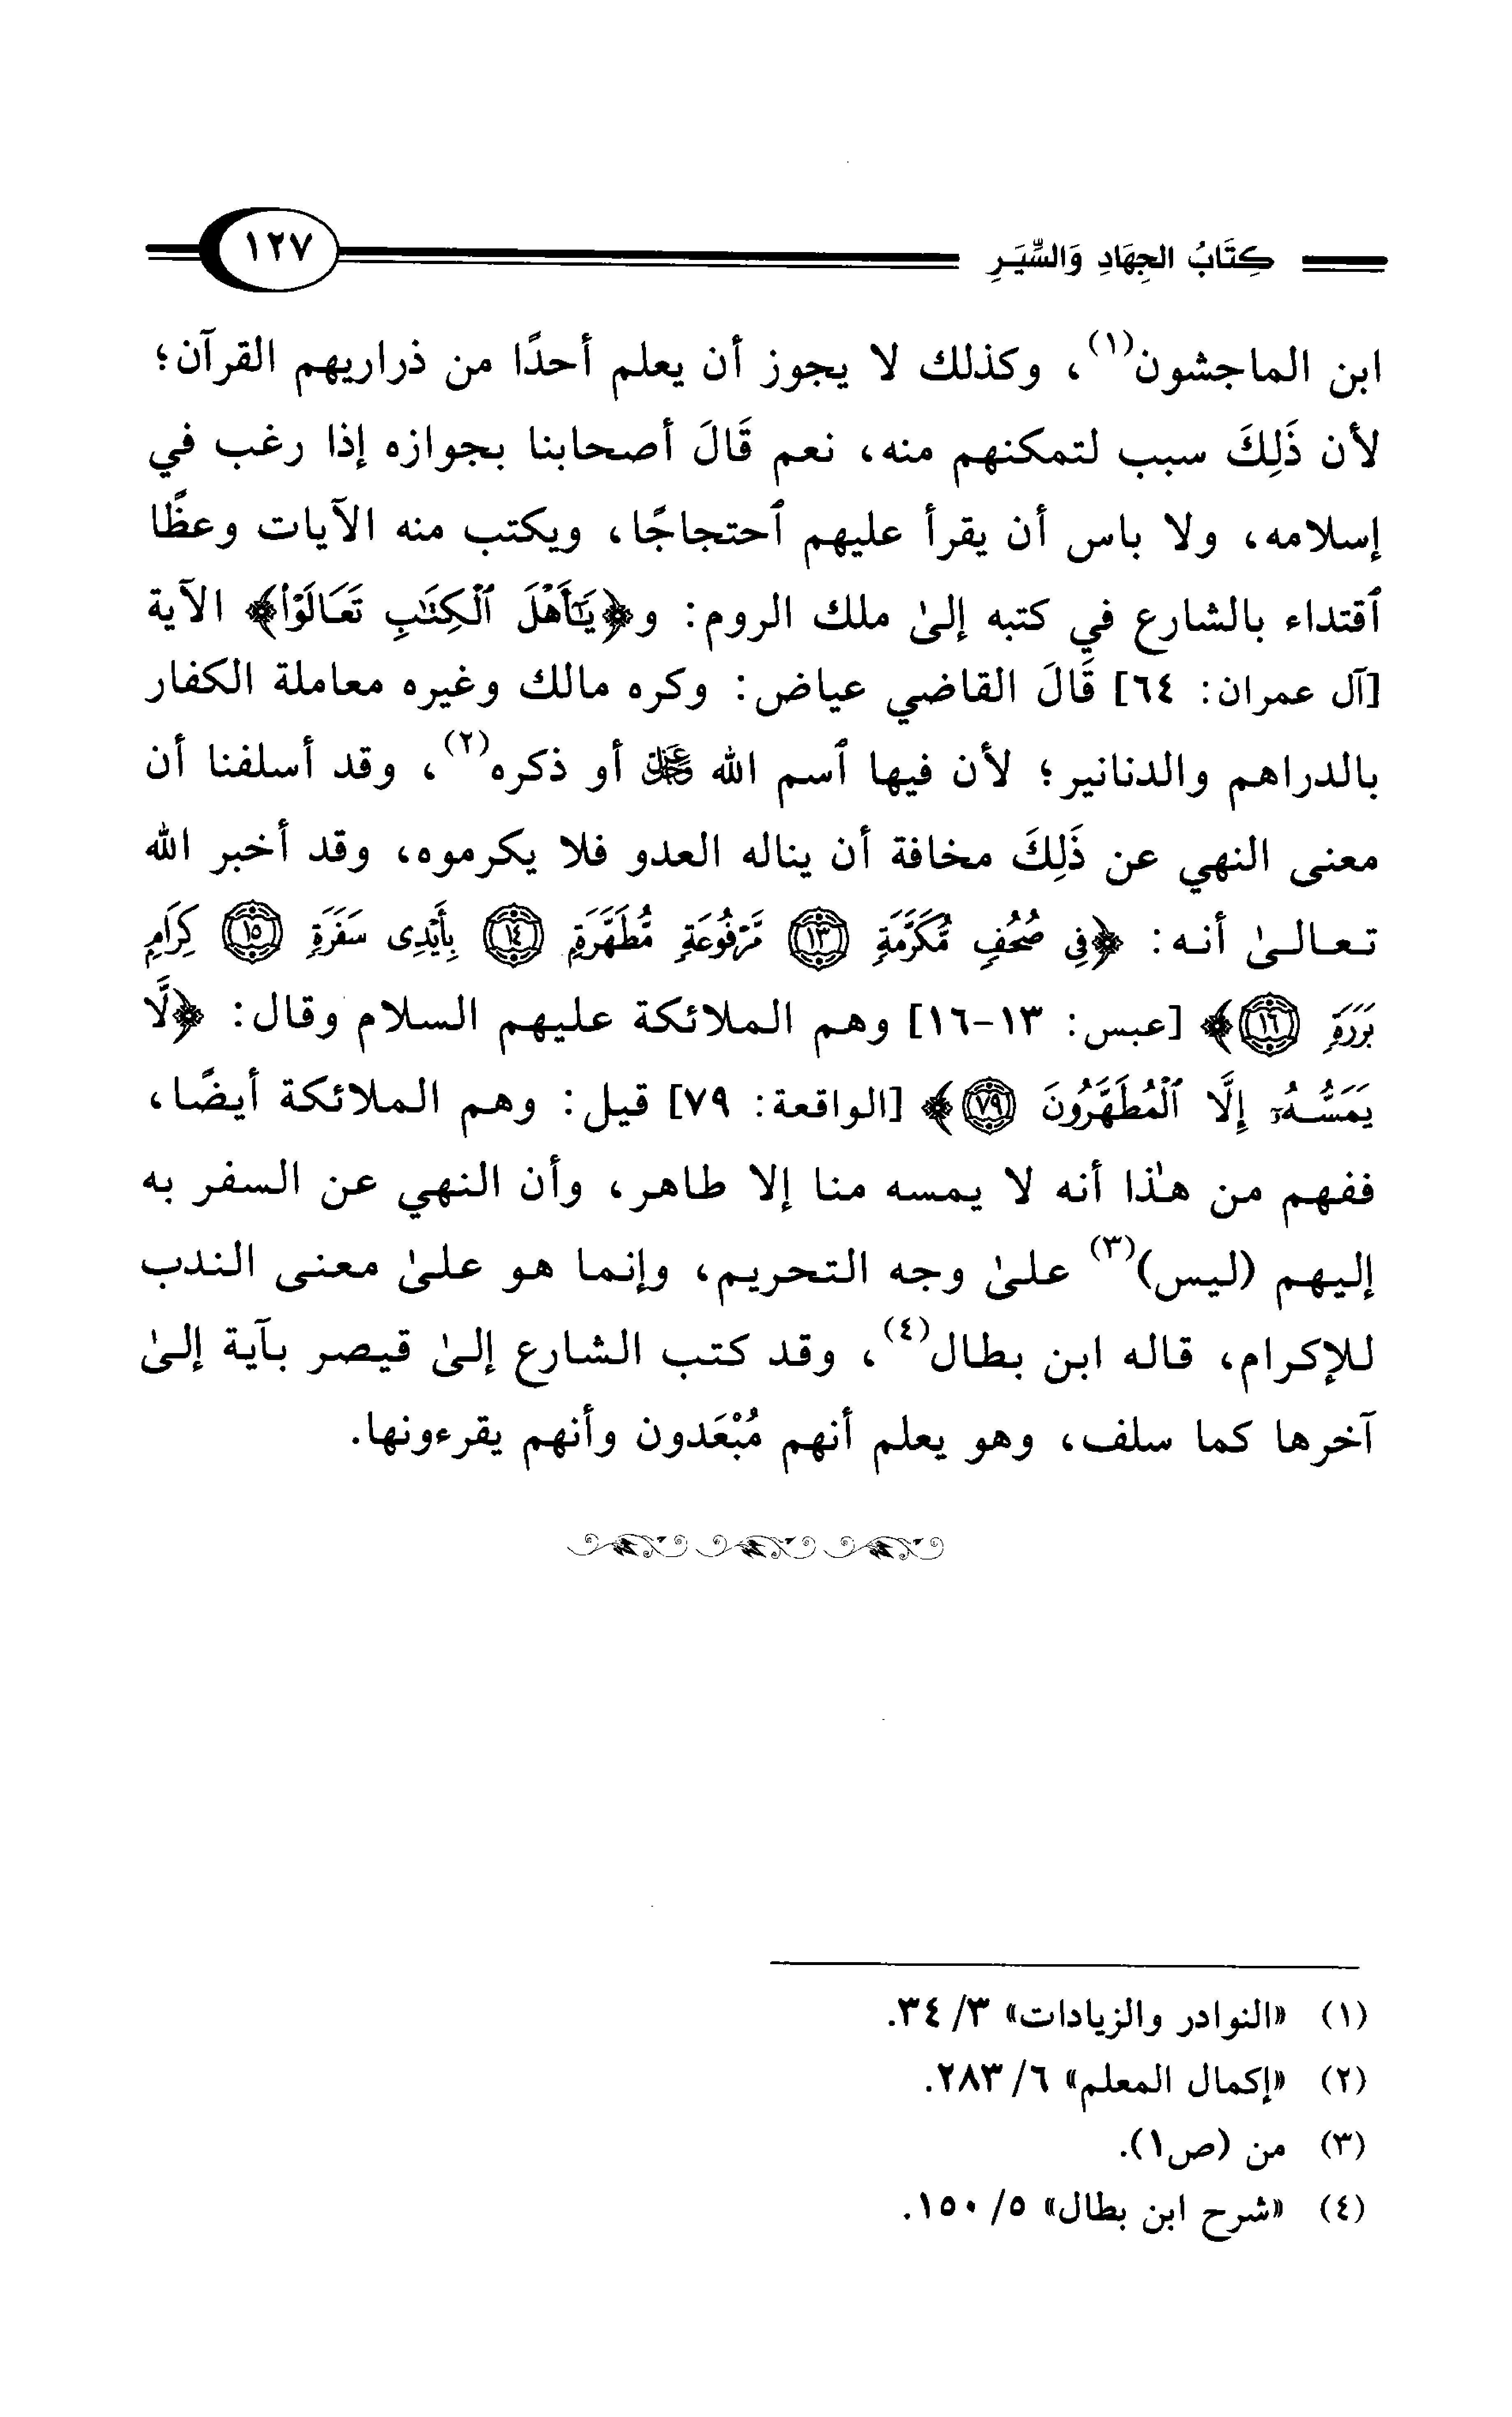 كِتَابُ الجِهَادِ وَالسِّيَرِ ١٢٧
ابن الماجشون(١)، وكذلك لا يجوز أن يعلم أحدًا من ذراريهم القرآن؛
لأن ذَلِكَ سبب لتمكنهم منه، نعم قَالَ أصحابنا بجوازه إذا رغب في
إسلامه، ولا باس أن يقرأ عليهم ٱحتجاجًا، ويكتب منه الآيات وعظًا
ٱقتداء بالشارع في كتبه إلىٰ ملك الروم: و﴿يَـٰٓأَهْلَ ٱلْكِتَـٰبِ تَعَالَوْا۟﴾ الآية
[آل عمران: ٦٤] قَالَ القاضي عياض: وكره مالك وغيره معاملة الكفار
بالدراهم والدنانير؛ لأن فيها ٱسم الله عَزَّ وَجَلَّ أو ذكره(٢)، وقد أسلفنا أن
معنى النهي عن ذَلِكَ مخافة أن يناله العدو فلا يكرموه، وقد أخبر الله
تعالىٰ أنه: ﴿فِى صُحُفٍ مُّكَرَّمَةٍ ١٣ مَّرْفُوعَةٍ مُّطَهَّرَةٍ ١٤ بِأَيْدِى سَفَرَةٍ ١٥ كِرَامٍ
بَرَرَةٍ ١٦﴾ [عبس: ١٣-١٦] وهم الملائكة عليهم السلام وقال: ﴿لَّا
يَمَسُّهُۥٓ إِلَّا ٱلْمُطَهَّرُونَ ٧٩﴾ [الواقعة: ٧٩] قيل: وهم الملائكة أيضًا،
ففهم من هٰذا أنه لا يمسه منا إلا طاهر، وأن النهي عن السفر به
إليهم (ليس)(٣) علىٰ وجه التحريم، وإنما هو علىٰ معنى الندب
للإكرام، قاله ابن بطال(٤)، وقد كتب الشارع إلىٰ قيصر بآية إلىٰ
آخرها كما سلف، وهو يعلم أنهم مُبْعَدون وأنهم يقرءونها.
(١) «النوادر والزيادات» ٣/ ٣٤.
(٢) «إكمال المعلم» ٦/ ٢٨٣.
(٣) من (ص١).
(٤) «شرح ابن بطال» ٥/ ١٥٠.